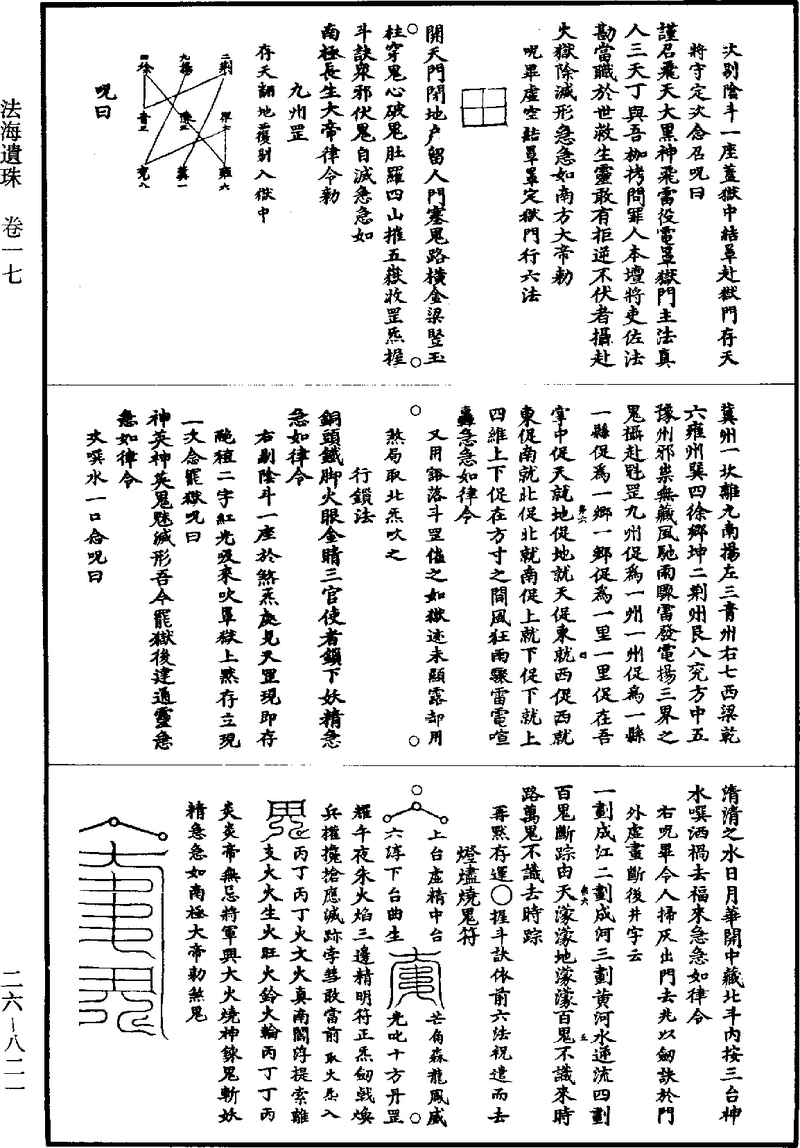 法海遺珠 卷一七
二六—八二一
次剔陰斗一座蓋獄中結罩赴獄門存天
將守定次念召呪曰
謹召飛天大黑神飛雷役電罩獄門主法真
人三天丁與吾枷拷問罪人本壇將吏佐法
勘當職於世救生靈敢有拒逆不伏者攝赴
火獄除滅形急急如南方大帝勅
呪畢虛空結罩罩定獄門行六法
開天門閉地户留人門塞鬼路橫金梁竪玉
柱穿鬼心破鬼肚羅四山摧五嶽收罡炁握
斗訣衆邪伏鬼自滅急急如
南極長生大帝律令勅
九州罡
存天翻地覆剔入獄中
二荆
九揚
四徐
七
三
三青
六雍
一冀
八兗
呪曰
冀州一坎離九南揚左三青州右七西梁乾
六雍州巽四徐鄉坤二荆州艮八兗方中五
豫州邪祟無藏風馳雨驟雷發電揚三界之
鬼攝赴魁罡九州促爲一州一州促爲一縣
一縣促爲一鄉一鄉促爲一里一里促在吾
掌中促天就地促地就天促東就西促西就
東促南就北促北就南促上就下促下就上
四維上下促在方寸之間風狂雨驟雷電喧
轟急急如律令
又用諏落斗罡催之如獄迹未顯露却用
煞局取北炁吹之
行鎖法
銅頭鐵脚火眼金睛三官使者鎖下妖精急
急如律令
右剔陰斗一座於煞炁處見天罡現即存
䰢䰰二字紅光吸來吹罩獄上默存立現
一次念罷獄呪曰
神英神英鬼魅滅形吾今罷獄後逹通靈急
急如律令
次噀水一口念呪曰
清清之水日月華開中藏北斗内按三台神
水噀洒禍去福來急急如律令
右呪畢令人掃灰出門去兆以劒訣於門
外虛畫斷後井字云
一劃成江二劃成河三劃黄河水逆流四劃
百鬼斷踪由天濛濛地濛濛百鬼不識來時
路萬鬼不識去時踪
再默存運○握斗訣依前六法祝遣而去
燈燼燒鬼符
上台虛精中台
六淳下台曲生
芒角森龍風威
光叱十方丹罡
耀午夜朱火焰三邊精明符正炁劒戟煥
兵權攙搶應滅跡孛彗敢當前取火炁入
丙丁丙丁火文火真南閣淳提索離
支火火生火旺火鈴火輪丙丁丁丙
炎炎帝無忌將軍興大火燒神鍊鬼斬妖
精急急如南極大帝勅煞鬼